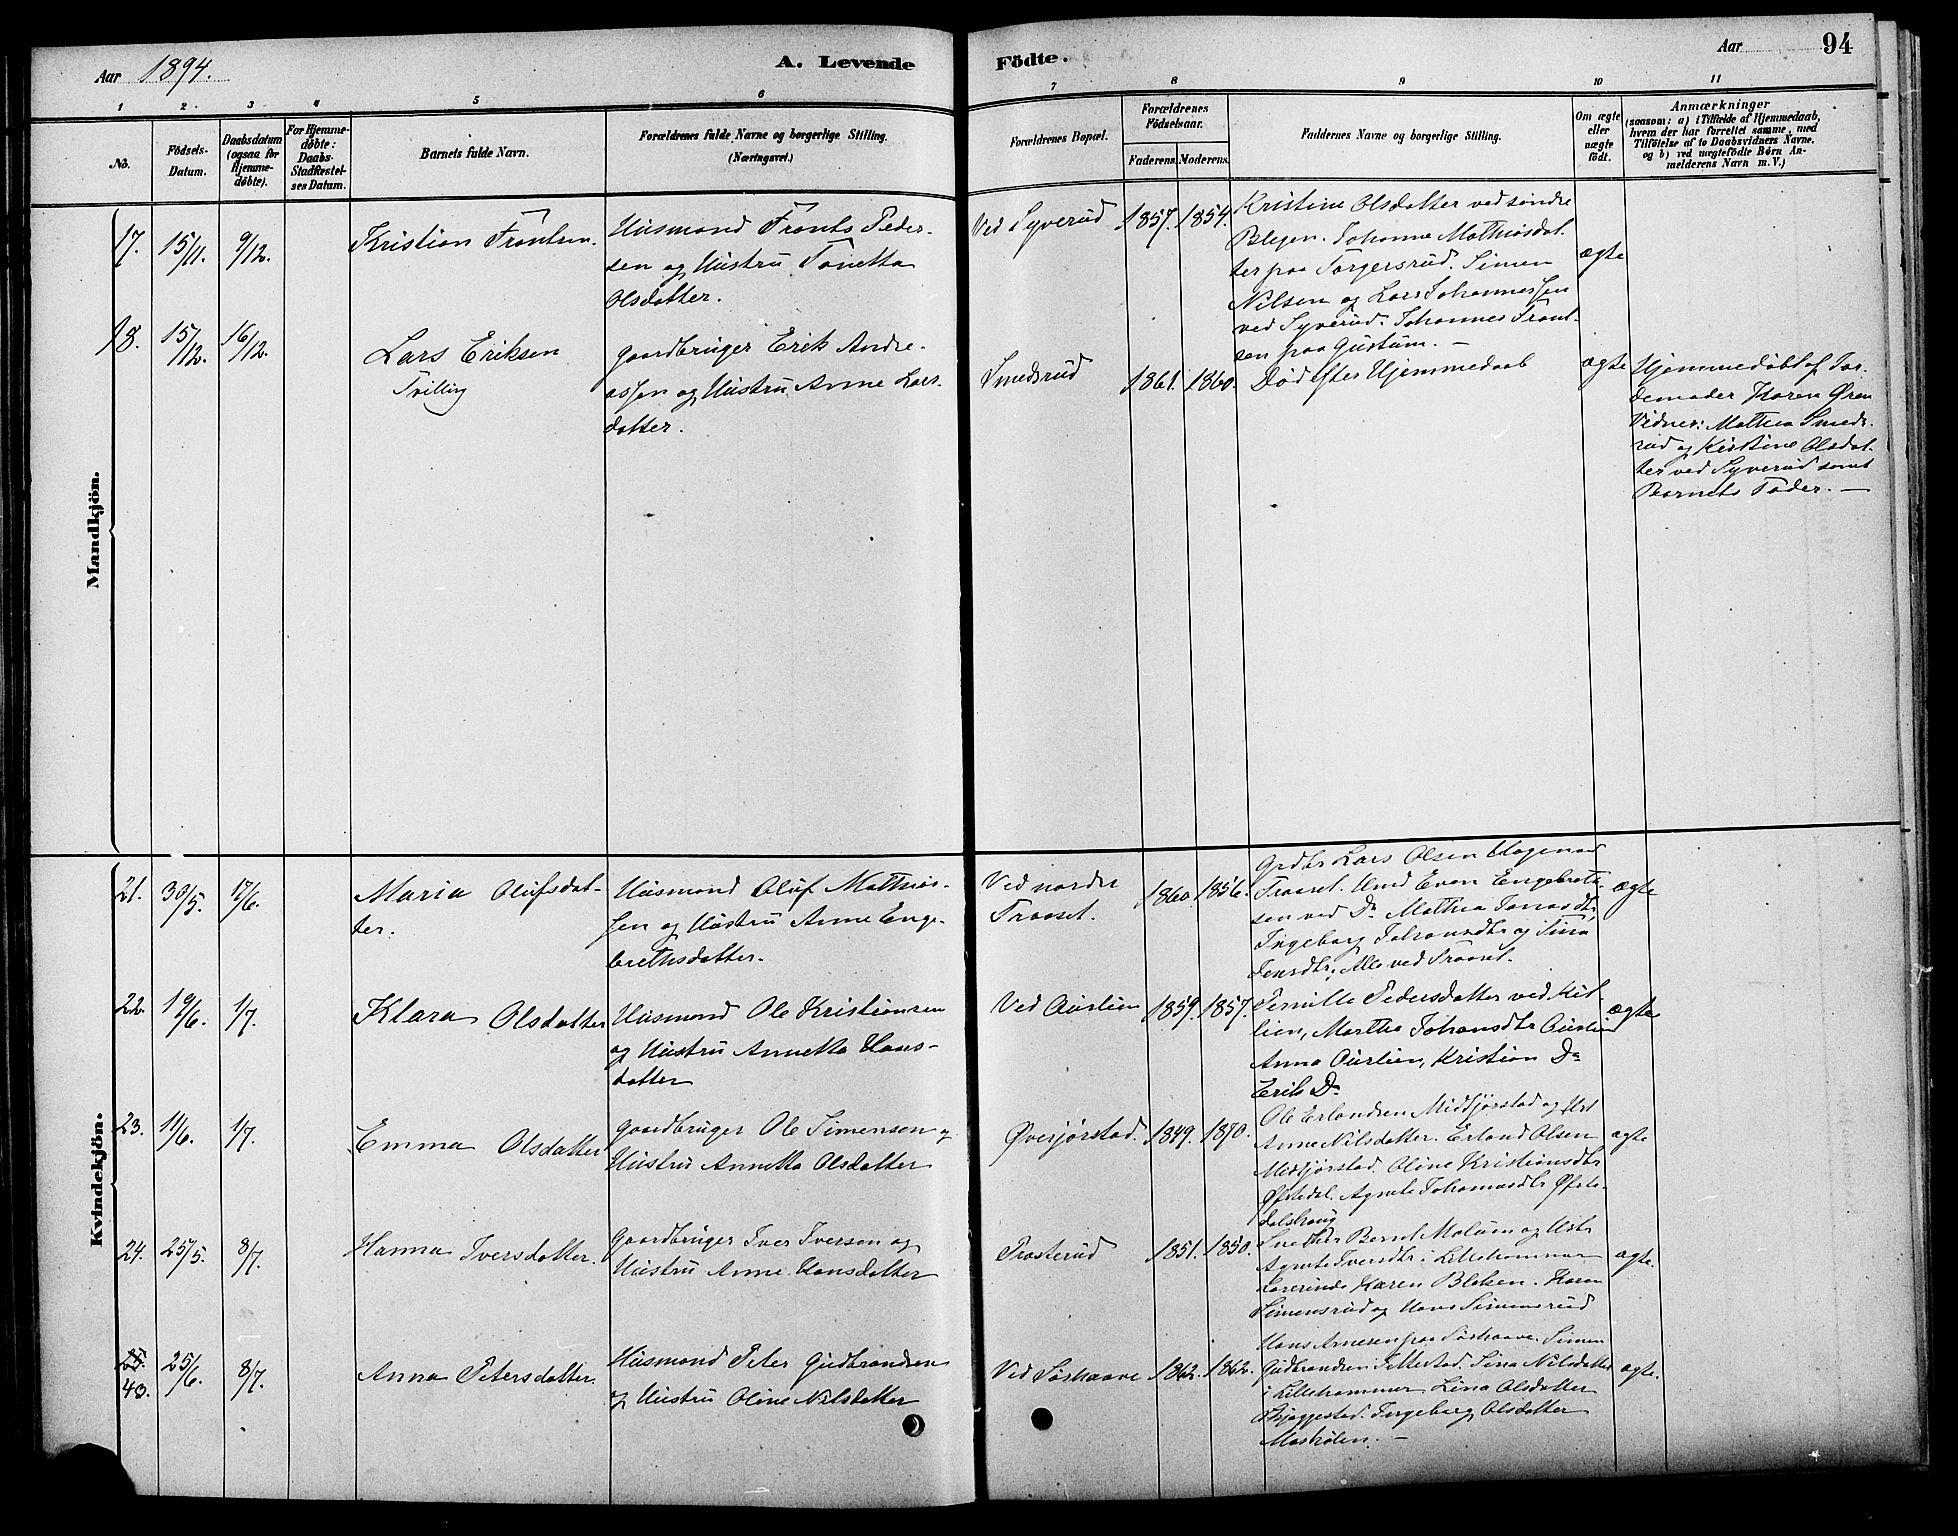 Aar 1894.
A. Levende
Födte.
Aar
94
1 2. 3 4 5 6
7 8 9 10 11
No.
Födsels-
Datum.
Daabsdatum
(ogsaa for
Hjemme-
döbte).
For Hjemme-
döbte:
Daabs-
Stadfæstel-
ses Datum.
Barnets fulde Navn.
Forældrenes fulde Navne og borgerlige Stilling.
(Næringsvei.)
Forældrenes Bopæl.
Forældrenes
Födselsaar.
Faderens. Moderens.
Faddernes Navne og borgerlige Stilling.
Om ægte
eller
uægte
födt.
Anmærkninger
(saasom: a) i Tilfælde af Hjemmedaab,
hvem der har forrettet samme, med
Tilföielse af to Daabsvidners Navne,
og b) ved uægtefödte Börn An-
melderens Navn m. V.)
Mandkjön.
17. 15/11. 9/12.
Kristian Frantsen.
Husmand Frants Peder-
sen og Hustru Tonetta
Olsdatter.
Ved Syverud
1857. 1854.
Kristine Olsdatter ved søndre
Blegen. Johanne Mathiasdat-
ter paa Torgersrud. Simen
Nilsen og Lars Johannessen
ved Syverud. Johannes Frant-
sen paa Gustum. —
ægte
18. 15/12. 16/12.
Lars Eriksen
Tvilling
Gaardbruger Erik Andre-
assen og Hustru Anne Lars-
datter.
Smedsrud
1861. 1860.
Død efter Hjemmedaab
ægte
Hjemmedøbt af Jor-
demoder Karen Øren
Vidner: Mathea Smeds-
rud og Kristine Olsdat-
ter ved Syverud samt
Barnets Fader. —
Kvindekjön.
21. 30/5. 17/6.
Maria Olufsdat-
ter.
Husmand Oluf Mathias-
sen og Hustru Anne Enge-
brethsdatter.
Ved nordre
Traaset.
1860. 1856.
Grdbr Lars Olsen Hagen
Traaset. Hmd Even Engebreth-
sen ved Do Mathea
Ingeborg Johansdtr og Tina
Jensdtr. Alle ved Traaset.
ægte
22. 19/6. 1/7.
Klara Olsdatter
Husmand Ole Kristiansen
og Hustru Annetta Hans-
datter
Ved Aurlien
1859. 1857.
Pernille Pedersdatter ved Kit-
lien, Martha Johansdtr Aurlien
Anna Aurlien, Kristian Do
Erik Do
ægte
23. 11/6. 1/7.
Emma Olsdatter
Gaardbruger Ole Simensen og
Hustru Annetta Olsdatter
Øvesjørstad.
1849. 1870.
Ole Erlandsen Midtjørstad og Hst
Anne Nilsdatter. Erland Olsen
Midtjørstad. Oline Kristiansdtr
Øfstedal. Agnete Johannesdtr Øfste-
dalshaug
ægte
24. 25/5. 8/7.
Hanna Iversdatter.
Gaardbruger Iver Iversen og
Hustru Anne Hansdatter
Prosterud
1851. 1850.
Snedker Bernt Malum og Hstr
Agnete Iversdtr i Lillehammer
Lærerinde Karen Bleken. Karen
Simensrud og Hans Simensrud
ægte.
25.
43. 25/6. 8/7.
Anna Petersdatter.
Husmand Peter Gudbrandsen
og Hustru Oline Nilsdatter
Ved Sørhaave
1862. 1862.
Hans Arnesen paa Sørhaave. Simen
Gudbrandsen Jettestad. Sina Nilsdatter
i Lillehammer. Lina Olsdatter
Skjeggestad. Ingeborg Olsdatter
Moshølen. —
ægte.